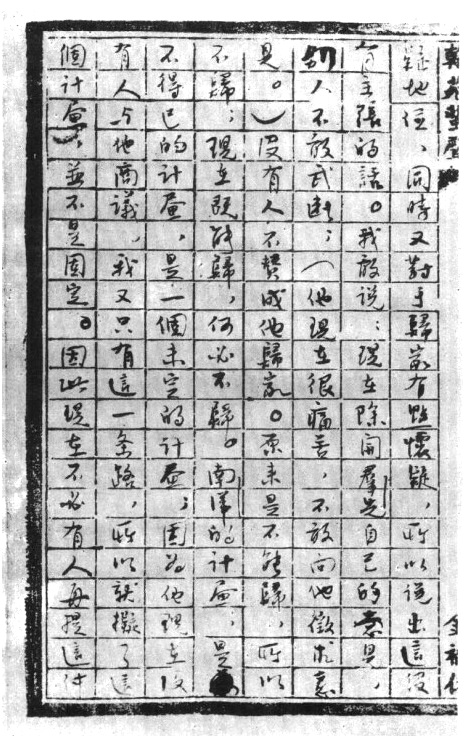 疑地位，同時又對于歸家有點懷疑，所以說出這沒
有主張的話。我敢说：现在除開羣先自己的意見，
别人不敢武断；（他現在很痛苦，不敢向他徵求意
見。）沒有人不赞成他歸家。原来是不能歸，所以
不歸；現在既能歸，何必不歸。南洋的计畫，是
不得已的计畫，是一個未定的计畫；因为他現在没
有人与他商議，我又只有這一条路，所以就擬了這
個计畫，並不是固定。因此現在不必有人再提這计